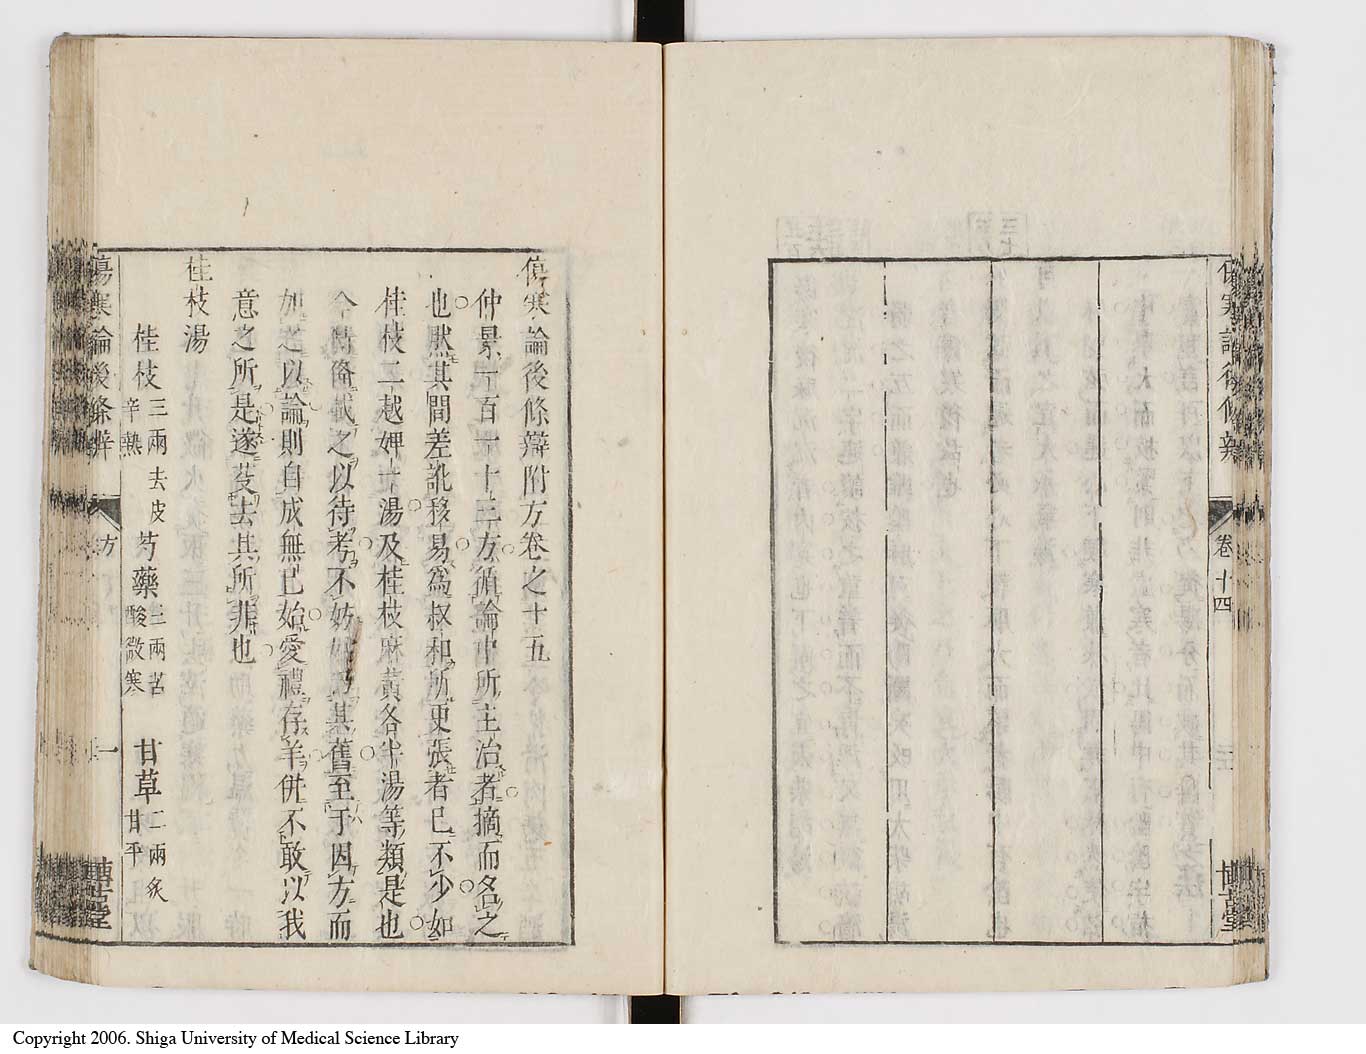 傷寒論後條辨
卷十四
博古堂
傷寒論後條辯附方卷之十五
仲景一百一十三方循論中所主治者摘而名之
也然其間差訛移易爲叔和所更張者已不少如
桂枝二越婢一湯及桂枝麻黃各半湯等類是也
今時倫載之以待考不妨仍其舊至于因方而
加之以論則自成無已始愛禮存羊併不敢以我
意之所是遂芟去其所非也
桂枝湯
桂枝三兩去皮辛熱 芍藥三兩苦酸微寒 甘草二兩炙甘平
傷寒論後條辨
方
一
博古堂
Copyright 2006. Shiga University of Medical Science Library